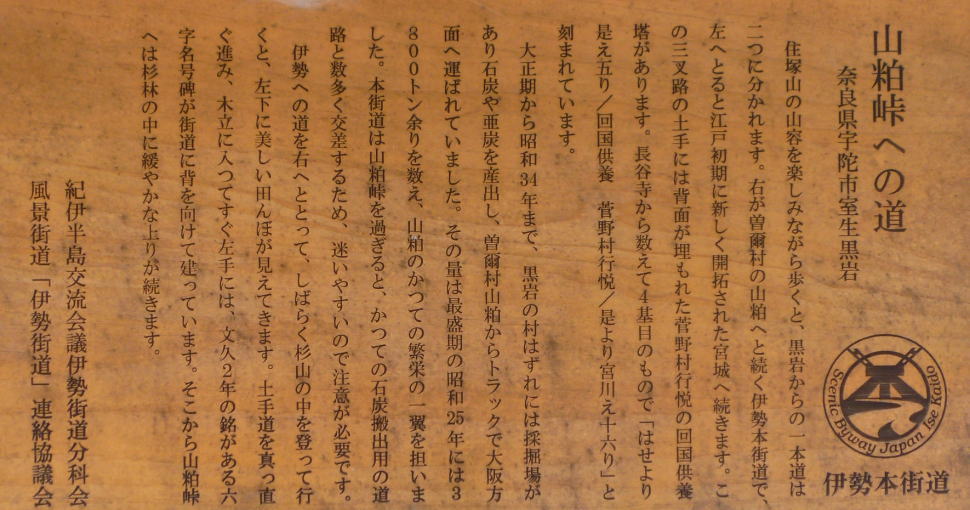 山粕峠への道
奈良県宇陀市室生黒岩
住塚山の山容を楽しみながら歩くと、黒岩からの一本道は
二つに分かれます。右が曽爾村の山粕へと続く伊勢本街道で、
左へとると江戸初期に新しく開拓された宮城へ続きます。こ
の三叉路の土手には背面が埋もれた菅野村行悦の回国供養
塔があります。長谷寺から数えて4基目のもので「はせより
是え五り／回国供養　菅野村行悦／是より宮川え十六り」と
刻まれています。
大正期から昭和34年まで、黒岩の村はずれには採掘場が
あり石炭や亜炭を産出し、曽爾村山粕からトラックで大阪方
面へ運ばれていました。その量は最盛期の昭和25年には3
800トン余りを数え、山粕のかつての繁栄の一翼を担いま
した。本街道は山粕峠を過ぎると、かつての石炭搬出用の道
路と数多く交差するため、迷いやすいので注意が必要です。
伊勢への道を右へととって、しばらく杉山の中を登って行
くと、左下に美しい田んぼが見えてきます。土手道を真っ直
ぐ進み、木立に入つてすぐ左手には、文久2年の銘がある六
字名号碑が街道に背を向けて建っています。そこから山粕峠
へは杉林の中に緩やかな上りが続きます。
紀伊半島交流会議伊勢街道分科会
風景街道「伊勢街道」連絡協議会
Scenic Byway Japan Ise Kaido
伊勢本街道